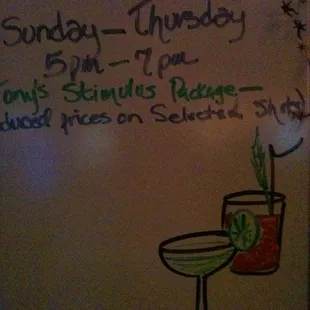 Sunday – Thursday
5 pm – 7 pm
Tony's Stimulus Package –
duced prices on Selected Shots